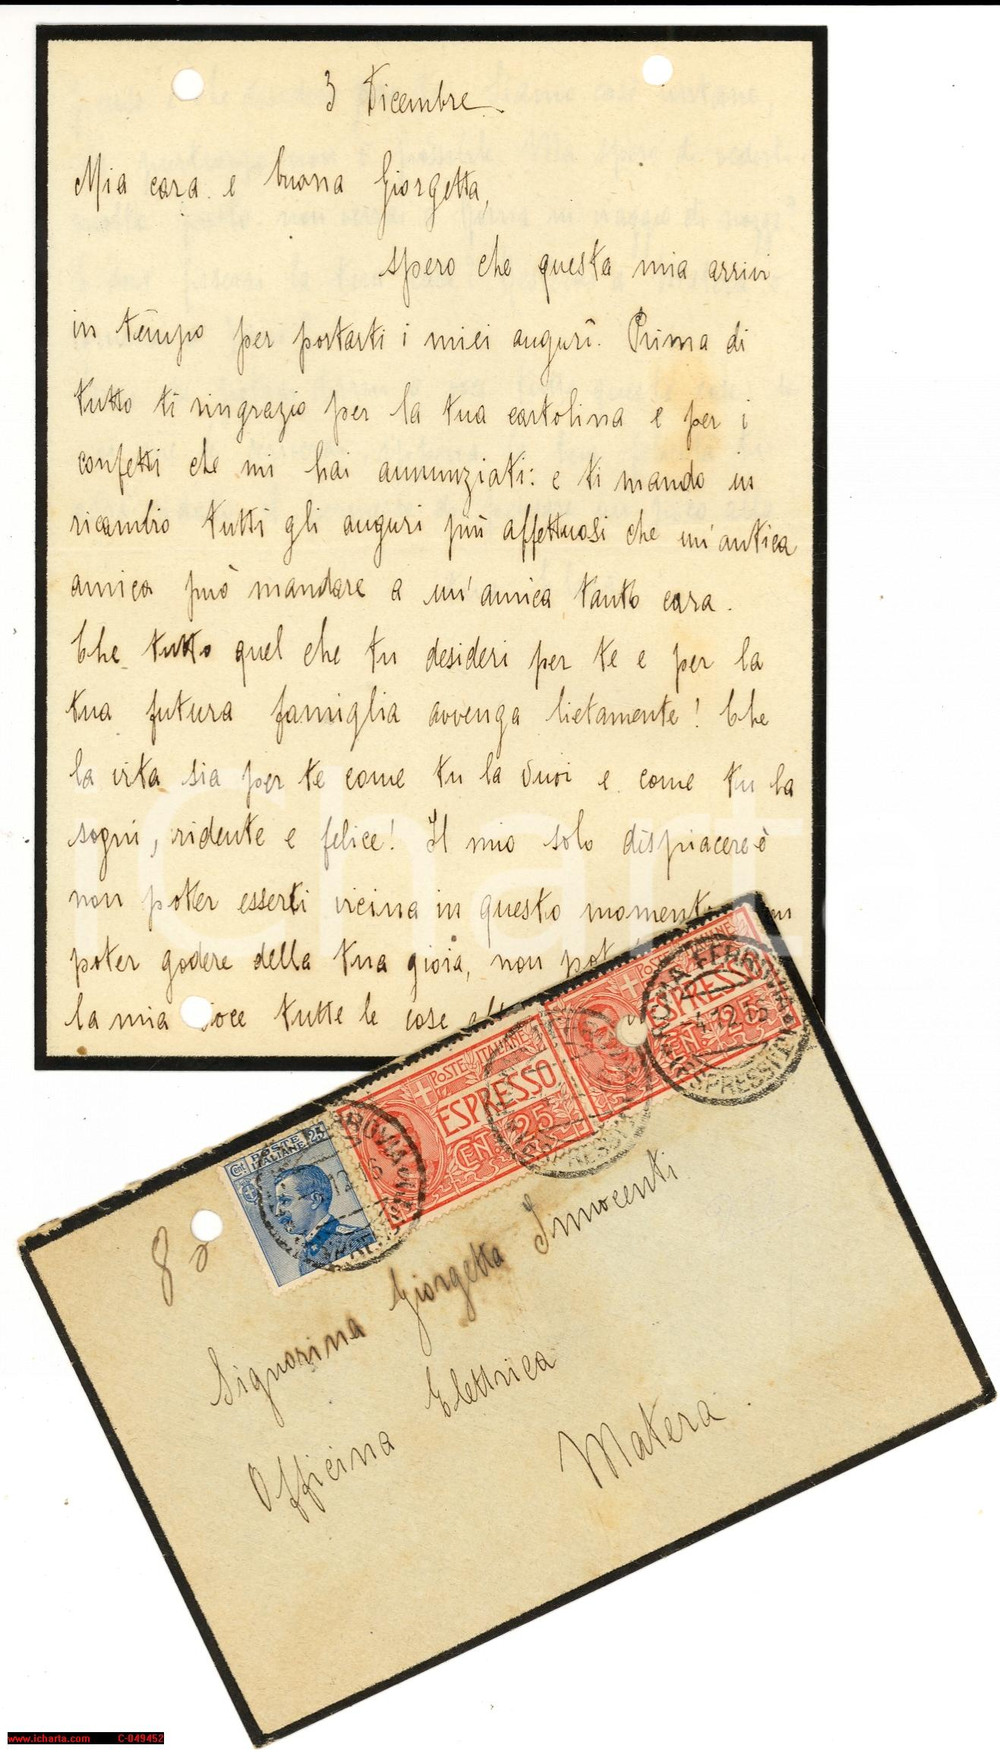 3 Dicembre
Mia cara e buona Giorgetta,
spero che questa mia arrivi
in tempo per portarti i miei auguri. Prima di
tutto ti ringrazio per la tua cartolina e per i
confetti che mi hai annunziati: e ti mando in
ricambio tutti gli auguri più affettuosi che un'antica
amica può mandare a un'amica tanto cara.
Che tutto quel che tu desideri per te e per la
tua futura famiglia avvenga lietamente! Che
la vita sia per te come tu la vuoi e come tu la
sogni, ridente e felice! Il mio solo dispiacere è
non poter esserti vicina in questo momento
poter godere della tua gioia, non pot
la mia voce tutte le cose
POSTE ITALIANE
ESPRESSO
CEN. 25
POSTE ITALIANE
ESPRESSO
ROMA FERROVIA
4.12.
ESPRESSI
Cent. POSTE ITALIANE 25
8
Signorina Giorgetta Innocenti
Officina Elettrica
Matera.
iCharta
www.icharta.com C-049452